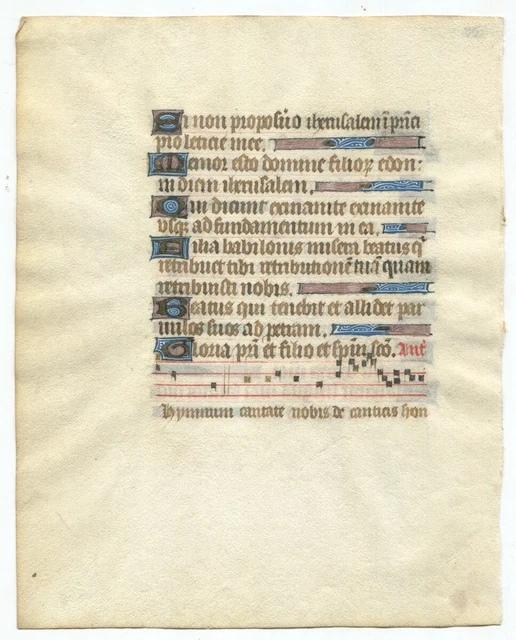 Si non proposu̾o iherusalem ī prīci
pio leticie mee.
Memor esto domine filioꝝ edon:
in diem iherusalem.
Qui dicunt exinanite exinanite
usqꝫ ad fundamentum in ea.
Filia babilonis misera beatus q̄
retribuet tibi retributionē tuā quam
retribuisti nobis.
Beatus qui tenebit et allidet par
uulos suos ad petram.
Gloria pr̄i et filio et spūi scō. Añt
Hymnum cantate nobis de canticis syon